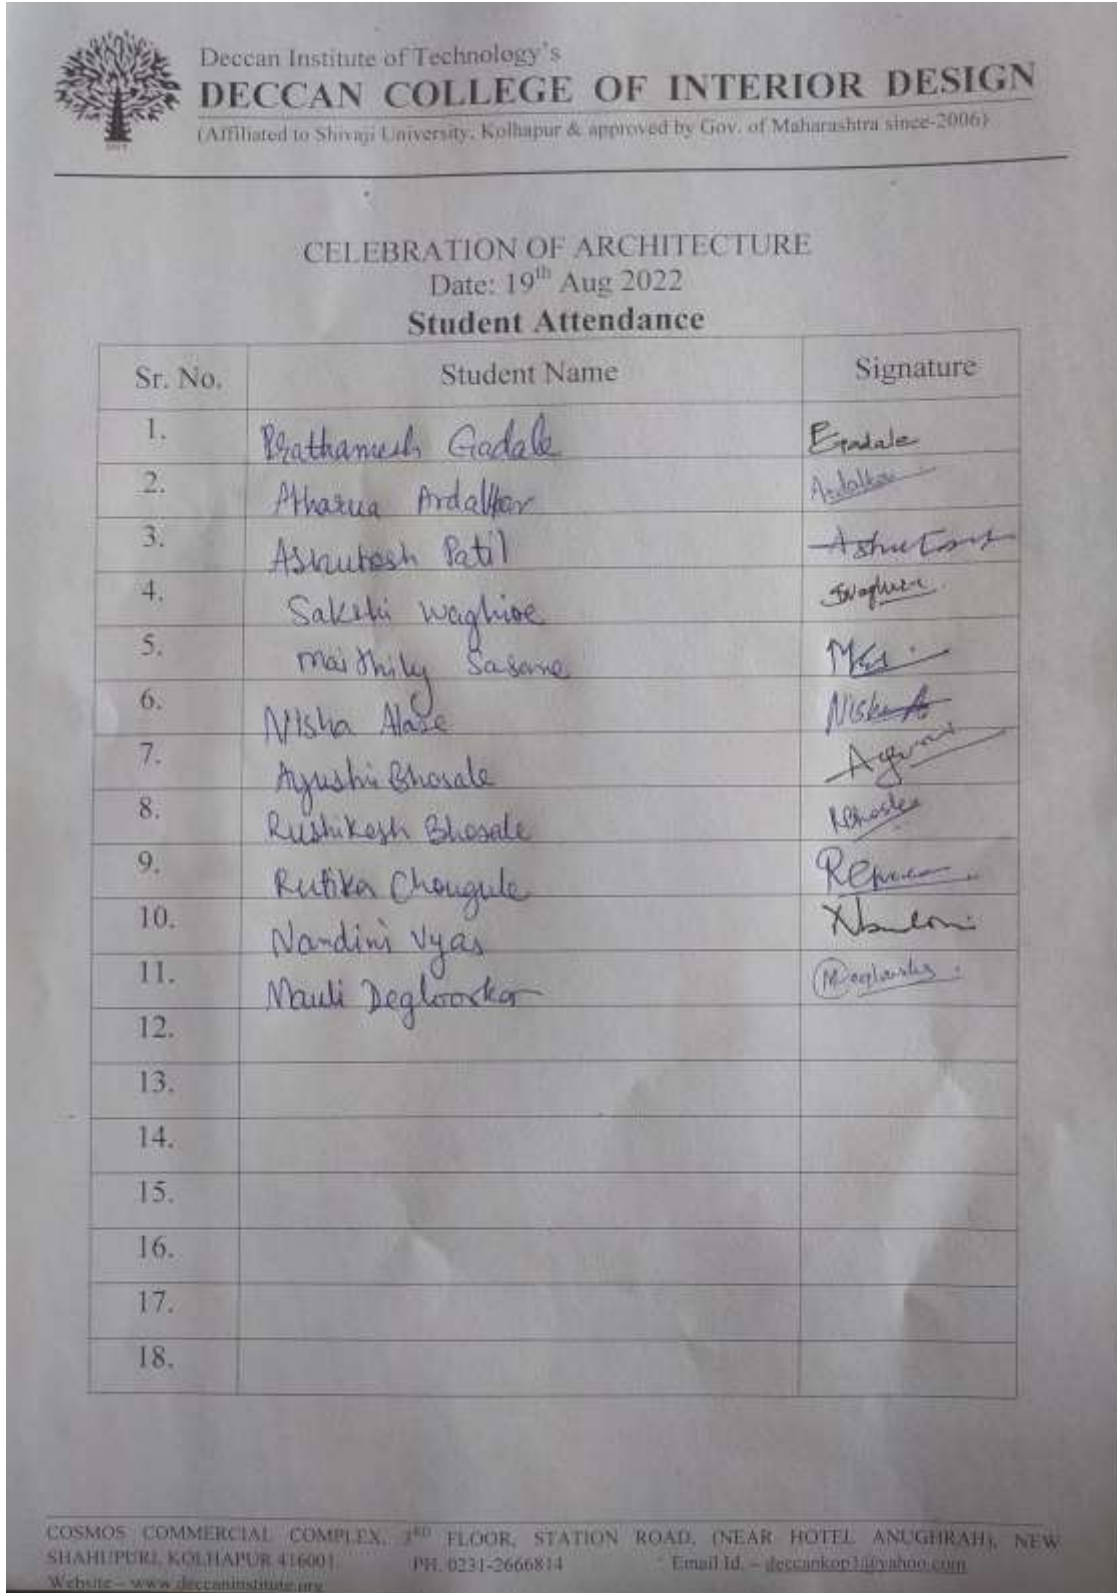 Deccan Institute of Technology's
DECCAN COLLEGE OF INTERIOR DESIGN
(Affiliated to Shivaji University, Kolhapur & approved by Gov. of Maharashtra since-2006)
CELEBRATION OF ARCHITECTURE
Date: 19th Aug 2022
Student Attendance
Sr. No. Student Name Signature
1. Prathamesh Gadale Gadale
2. Atharva Ardalkar Ardalkar
3. Ashutosh Patil Ashutosh
4. Sakshi Waghire
5. Maithily Sasane
6. Nisha Alase Nisha
7. Ayushi Bhosale
8. Rushikesh Bhosale
9. Rutika Chougule
10. Nandini Vyas
11. Mauli Degloorkar
12.
13.
14.
15.
16.
17.
18.
COSMOS COMMERCIAL COMPLEX, 3RD FLOOR, STATION ROAD, (NEAR HOTEL ANUGHRAH), NEW
SHAHUPURI, KOLHAPUR 416001. PH. 0231-2666814 Email Id. – deccankop1@yahoo.com
Website – www.deccaninstitute.org